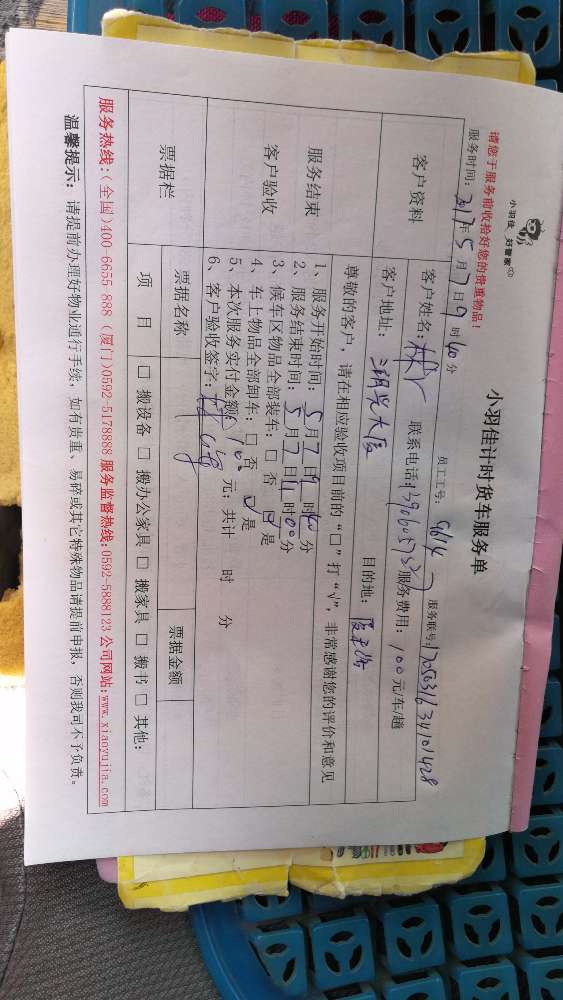 小羽佳 好管家
小羽佳计时货车服务单
请您于服务前收拾好您的贵重物品！
员工工号： 9614
服务账号：
服务时间：2017年5月7日9时40分
客户资料
客户姓名： 联系电话： 服务费用：100元/车/趟
客户地址： 兴大厦 目的地：
尊敬的客户，请在相应验收项目前的“□”打“√”，非常感谢您的评价和意见
服务结束
客户验收
1、服务开始时间：5月7日9时40分
2、服务结束时间：5月7日11时00分
3、候车区物品全部装车：□ 否 ☑ 是
4、车上物品全部卸车：□ 否 ☑ 是
5、本次服务实付金额：100元；共计 时 分
6、客户验收签字：
票据栏
票据名称 票据金额
项 目 □ 搬设备 □ 搬办公家具 □ 搬家具 □ 搬书 □ 其他：
服务热线：(全国)400-6655-888 (厦门)0592-5178888 服务监督热线:0592-5888123 公司网站:www.xiaoyujia.com
温馨提示： 请提前办理好物业通行手续，如有贵重、易碎或其它特殊物品请提前申报，否则我司不予负责。